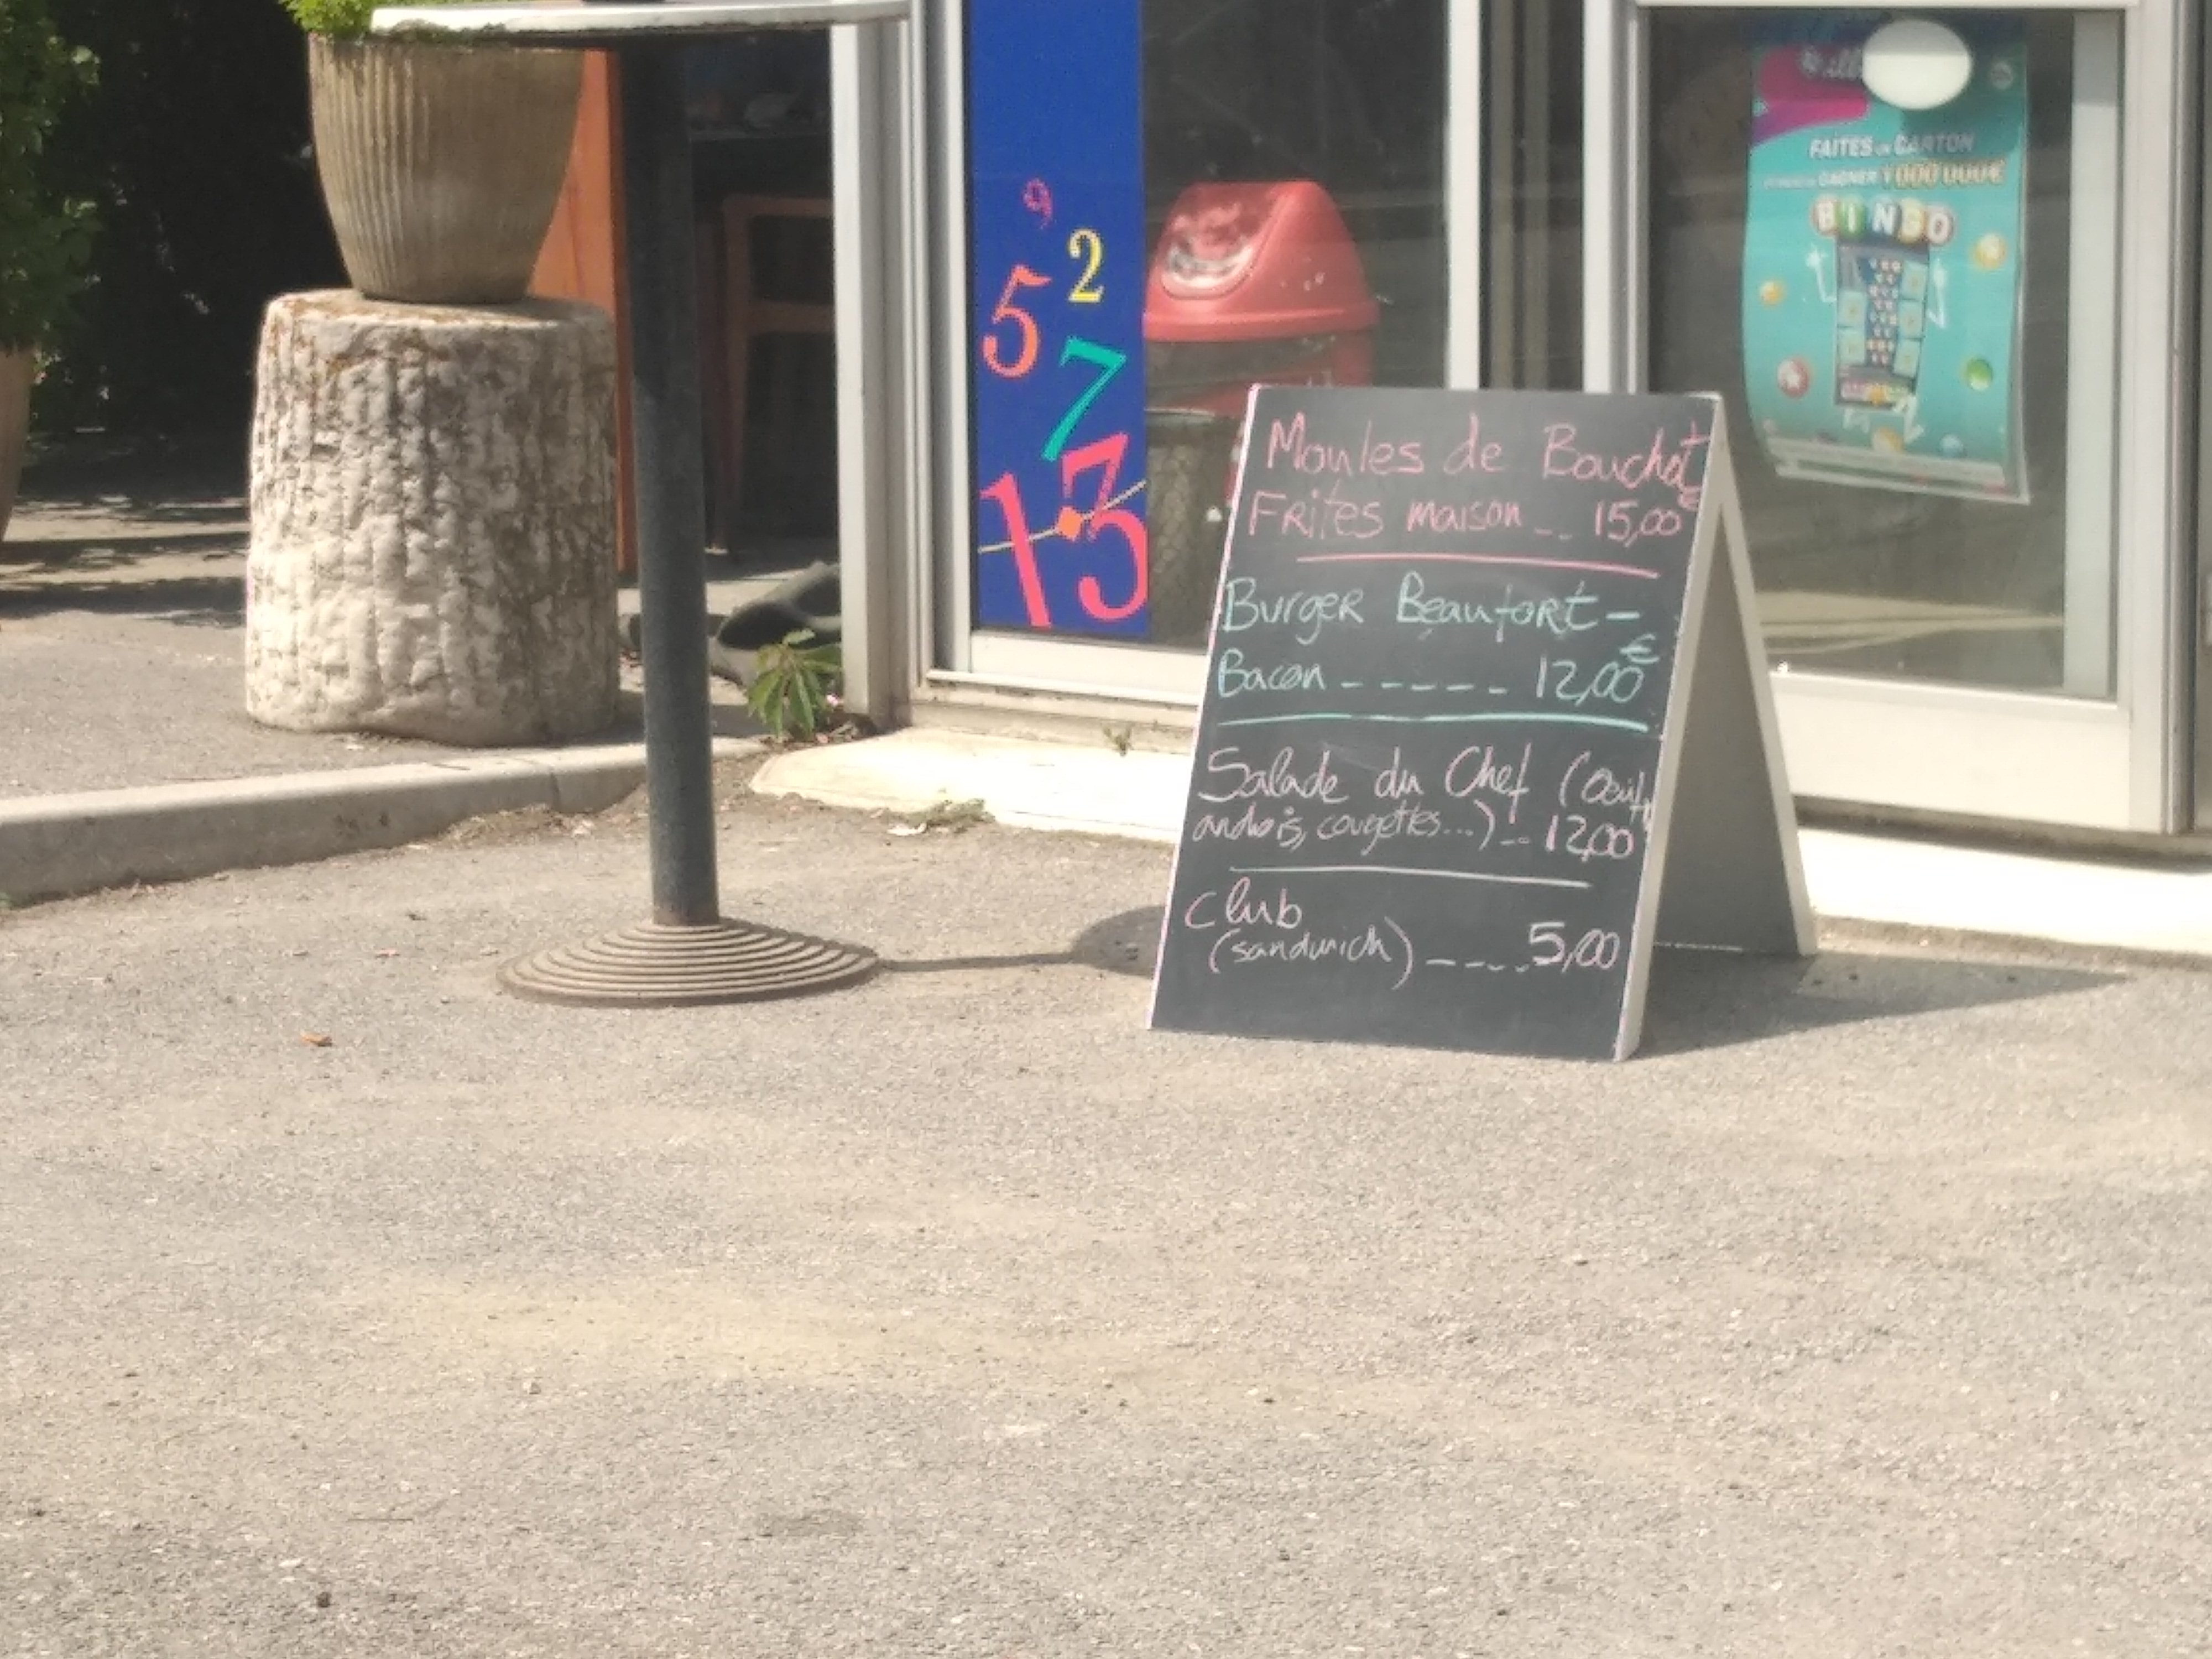 9
2
5
7
13
FAITES UN CARTON
GAGNER 1 000 000€
BINGO
Moules de Bouchot
Frites maison -- 15,00€
Burger Beaufort -
Bacon ------ 12,00€
Salade du Chef (Oeuf,
anchois, courgettes...) -- 12,00
Club
(sandwich) ----- 5,00